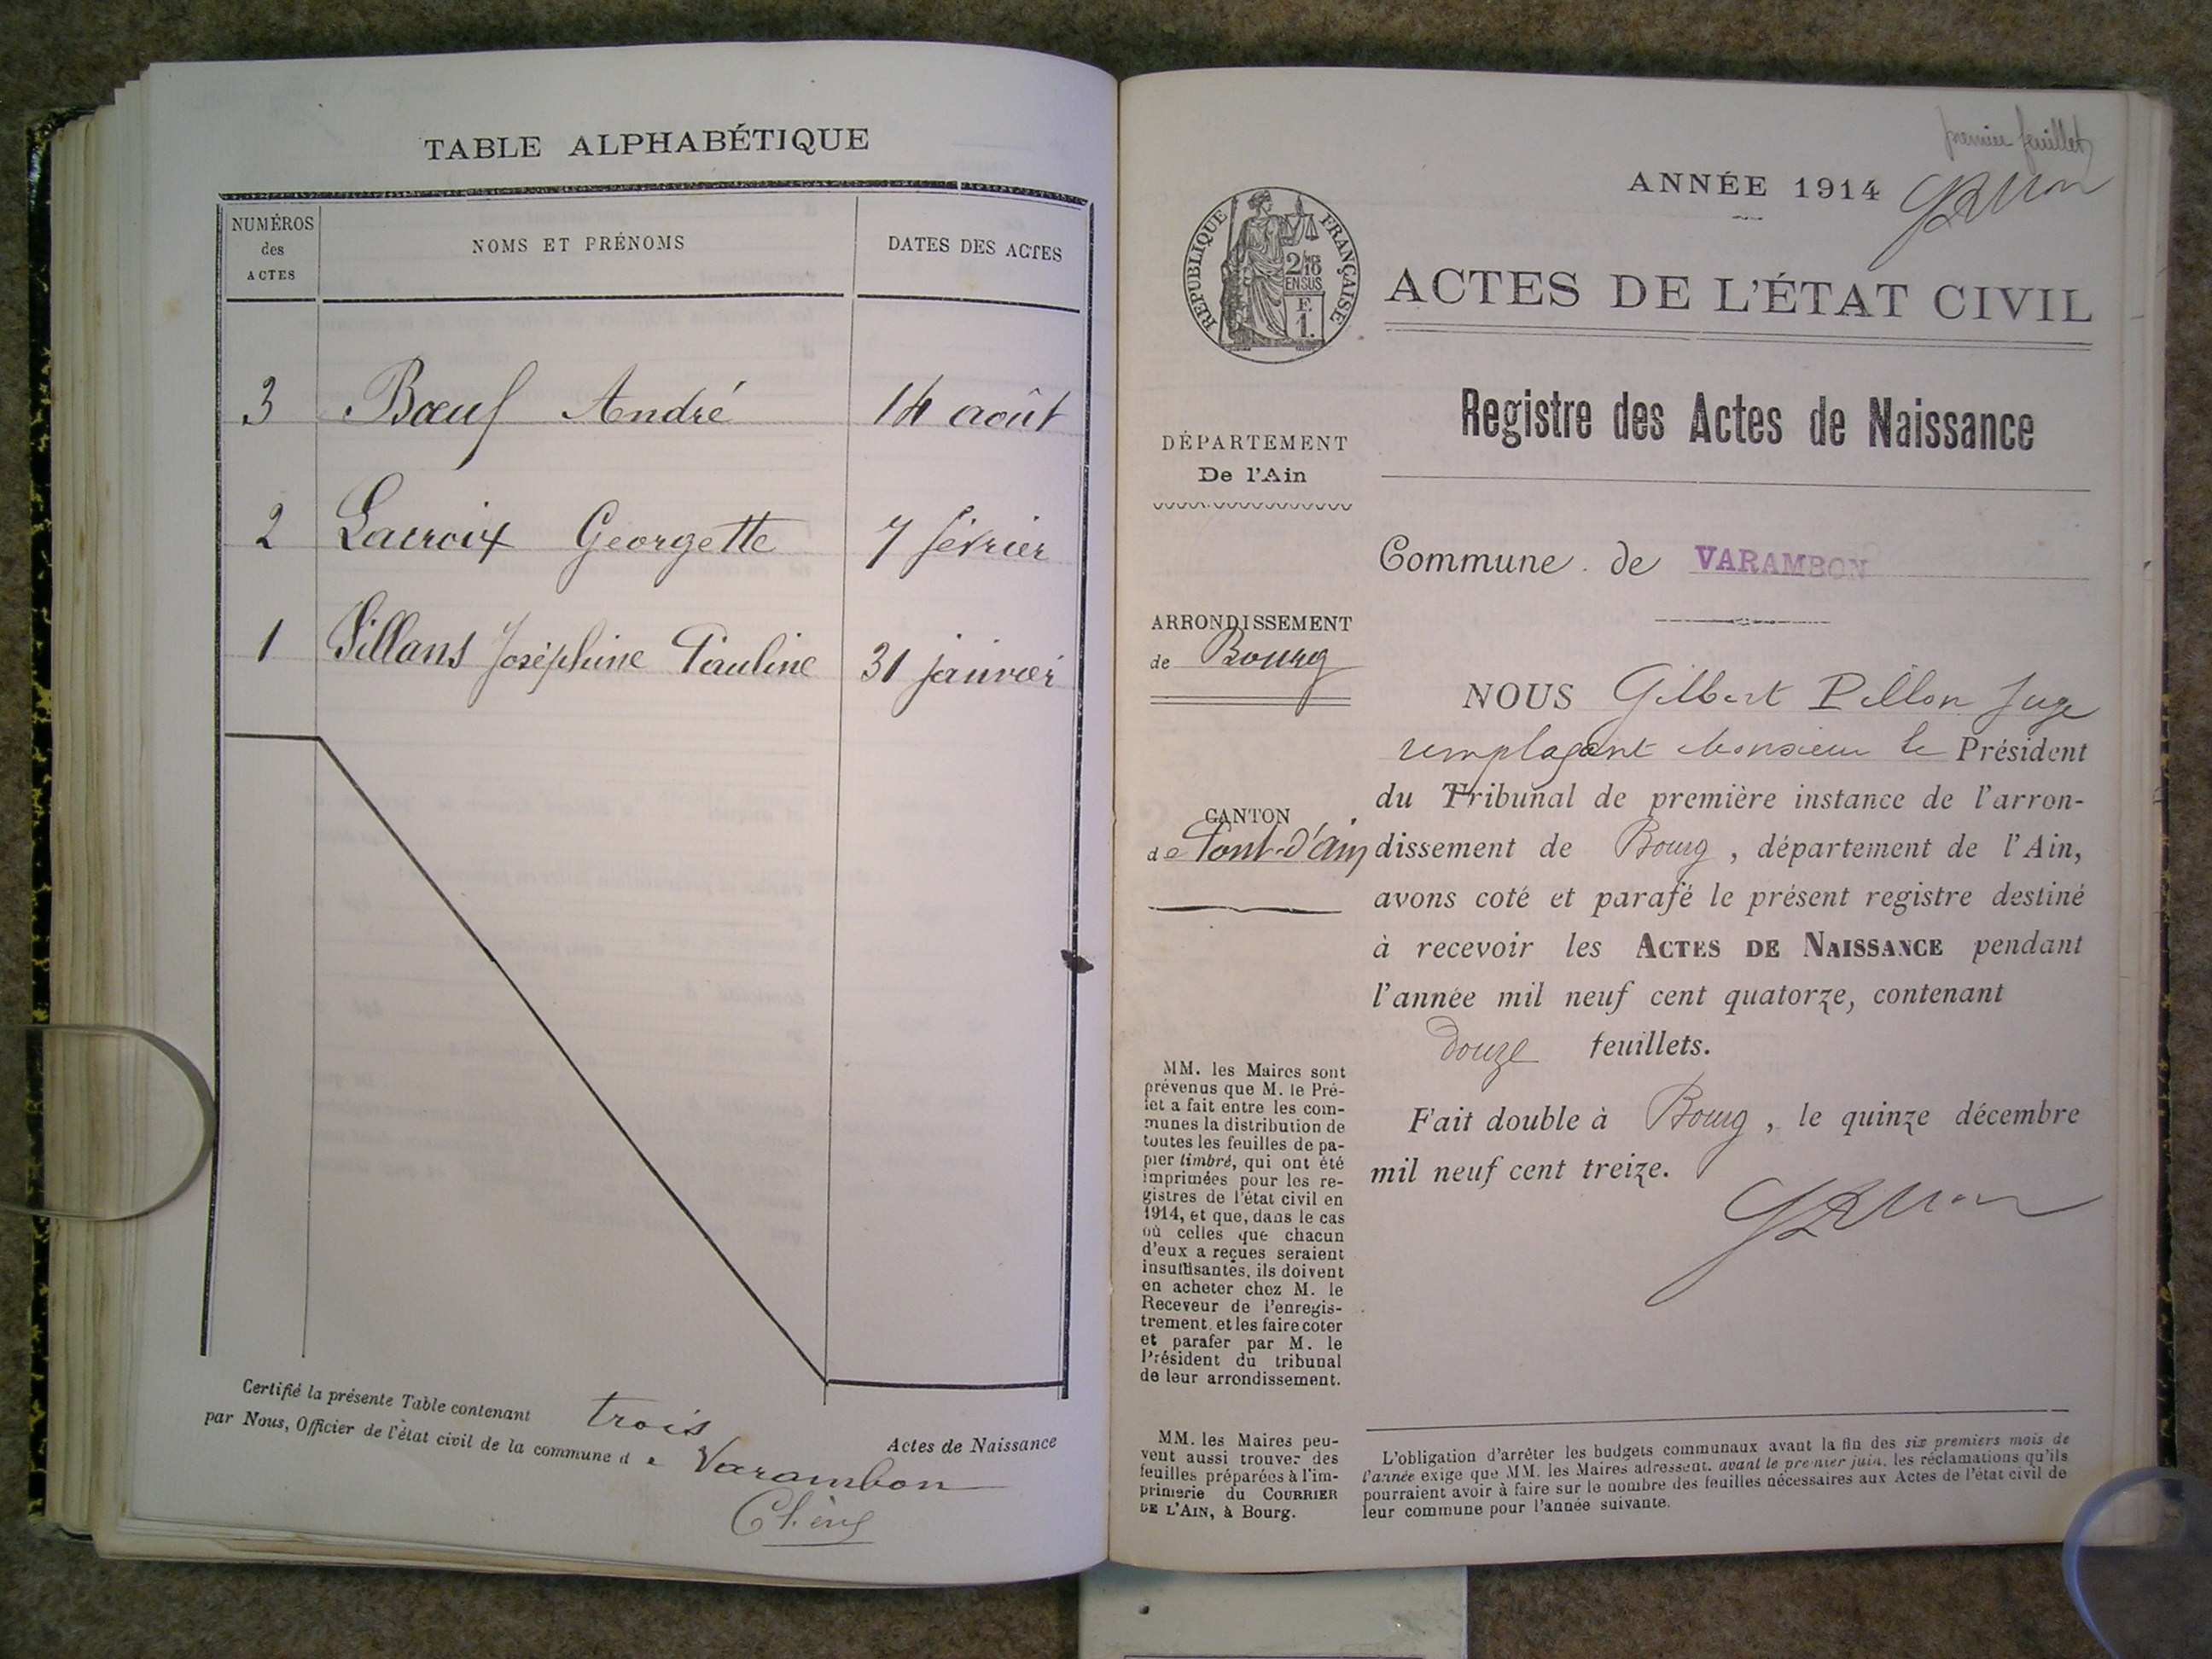 TABLE ALPHABÉTIQUE
NUMÉROS
des
ACTES
NOMS ET PRÉNOMS
DATES DES ACTES
3 Bœuf André 14 août
2 Lacroix Georgette 7 février
1 Sillans Joséphine Pauline 31 janvier
Certifié la présente Table contenant trois Actes de Naissance
par Nous, Officier de l'état civil de la commune de Varambon
premier feuillet
ANNÉE 1914
RÉPUBLIQUE FRANÇAISE
2/10
EN SUS
E
1.
ACTES DE L'ÉTAT CIVIL
Registre des Actes de Naissance
DÉPARTEMENT
De l'Ain
Commune de VARAMBON
ARRONDISSEMENT
de Bourg
CANTON
de Pont-d'Ain
NOUS Gilbert Pillon Juge
remplaçant Monsieur le Président
du Tribunal de première instance de l'arron-
dissement de Bourg, département de l'Ain,
avons coté et parafé le présent registre destiné
à recevoir les ACTES DE NAISSANCE pendant
l'année mil neuf cent quatorze, contenant
douze feuillets.
Fait double à Bourg, le quinze décembre
mil neuf cent treize.
MM. les Maires sont
prévenus que M. le Pré-
fet a fait entre les com-
munes la distribution de
toutes les feuilles de pa-
pier timbré, qui ont été
imprimées pour les re-
gistres de l'état civil en
1914, et que, dans le cas
où celles que chacun
d'eux a reçues seraient
insuffisantes, ils doivent
en acheter chez M. le
Receveur de l'enregis-
trement, et les faire coter
et parafer par M. le
Président du tribunal
de leur arrondissement.
MM. les Maires peu-
vent aussi trouver des
feuilles préparées à l'im-
primerie du COURRIER
DE L'AIN, à Bourg.
L'obligation d'arrêter les budgets communaux avant la fin des six premiers mois de
l'année exige que MM. les Maires adressent, avant le premier juin, les réclamations qu'ils
pourraient avoir à faire sur le nombre des feuilles nécessaires aux Actes de l'état civil de
leur commune pour l'année suivante.